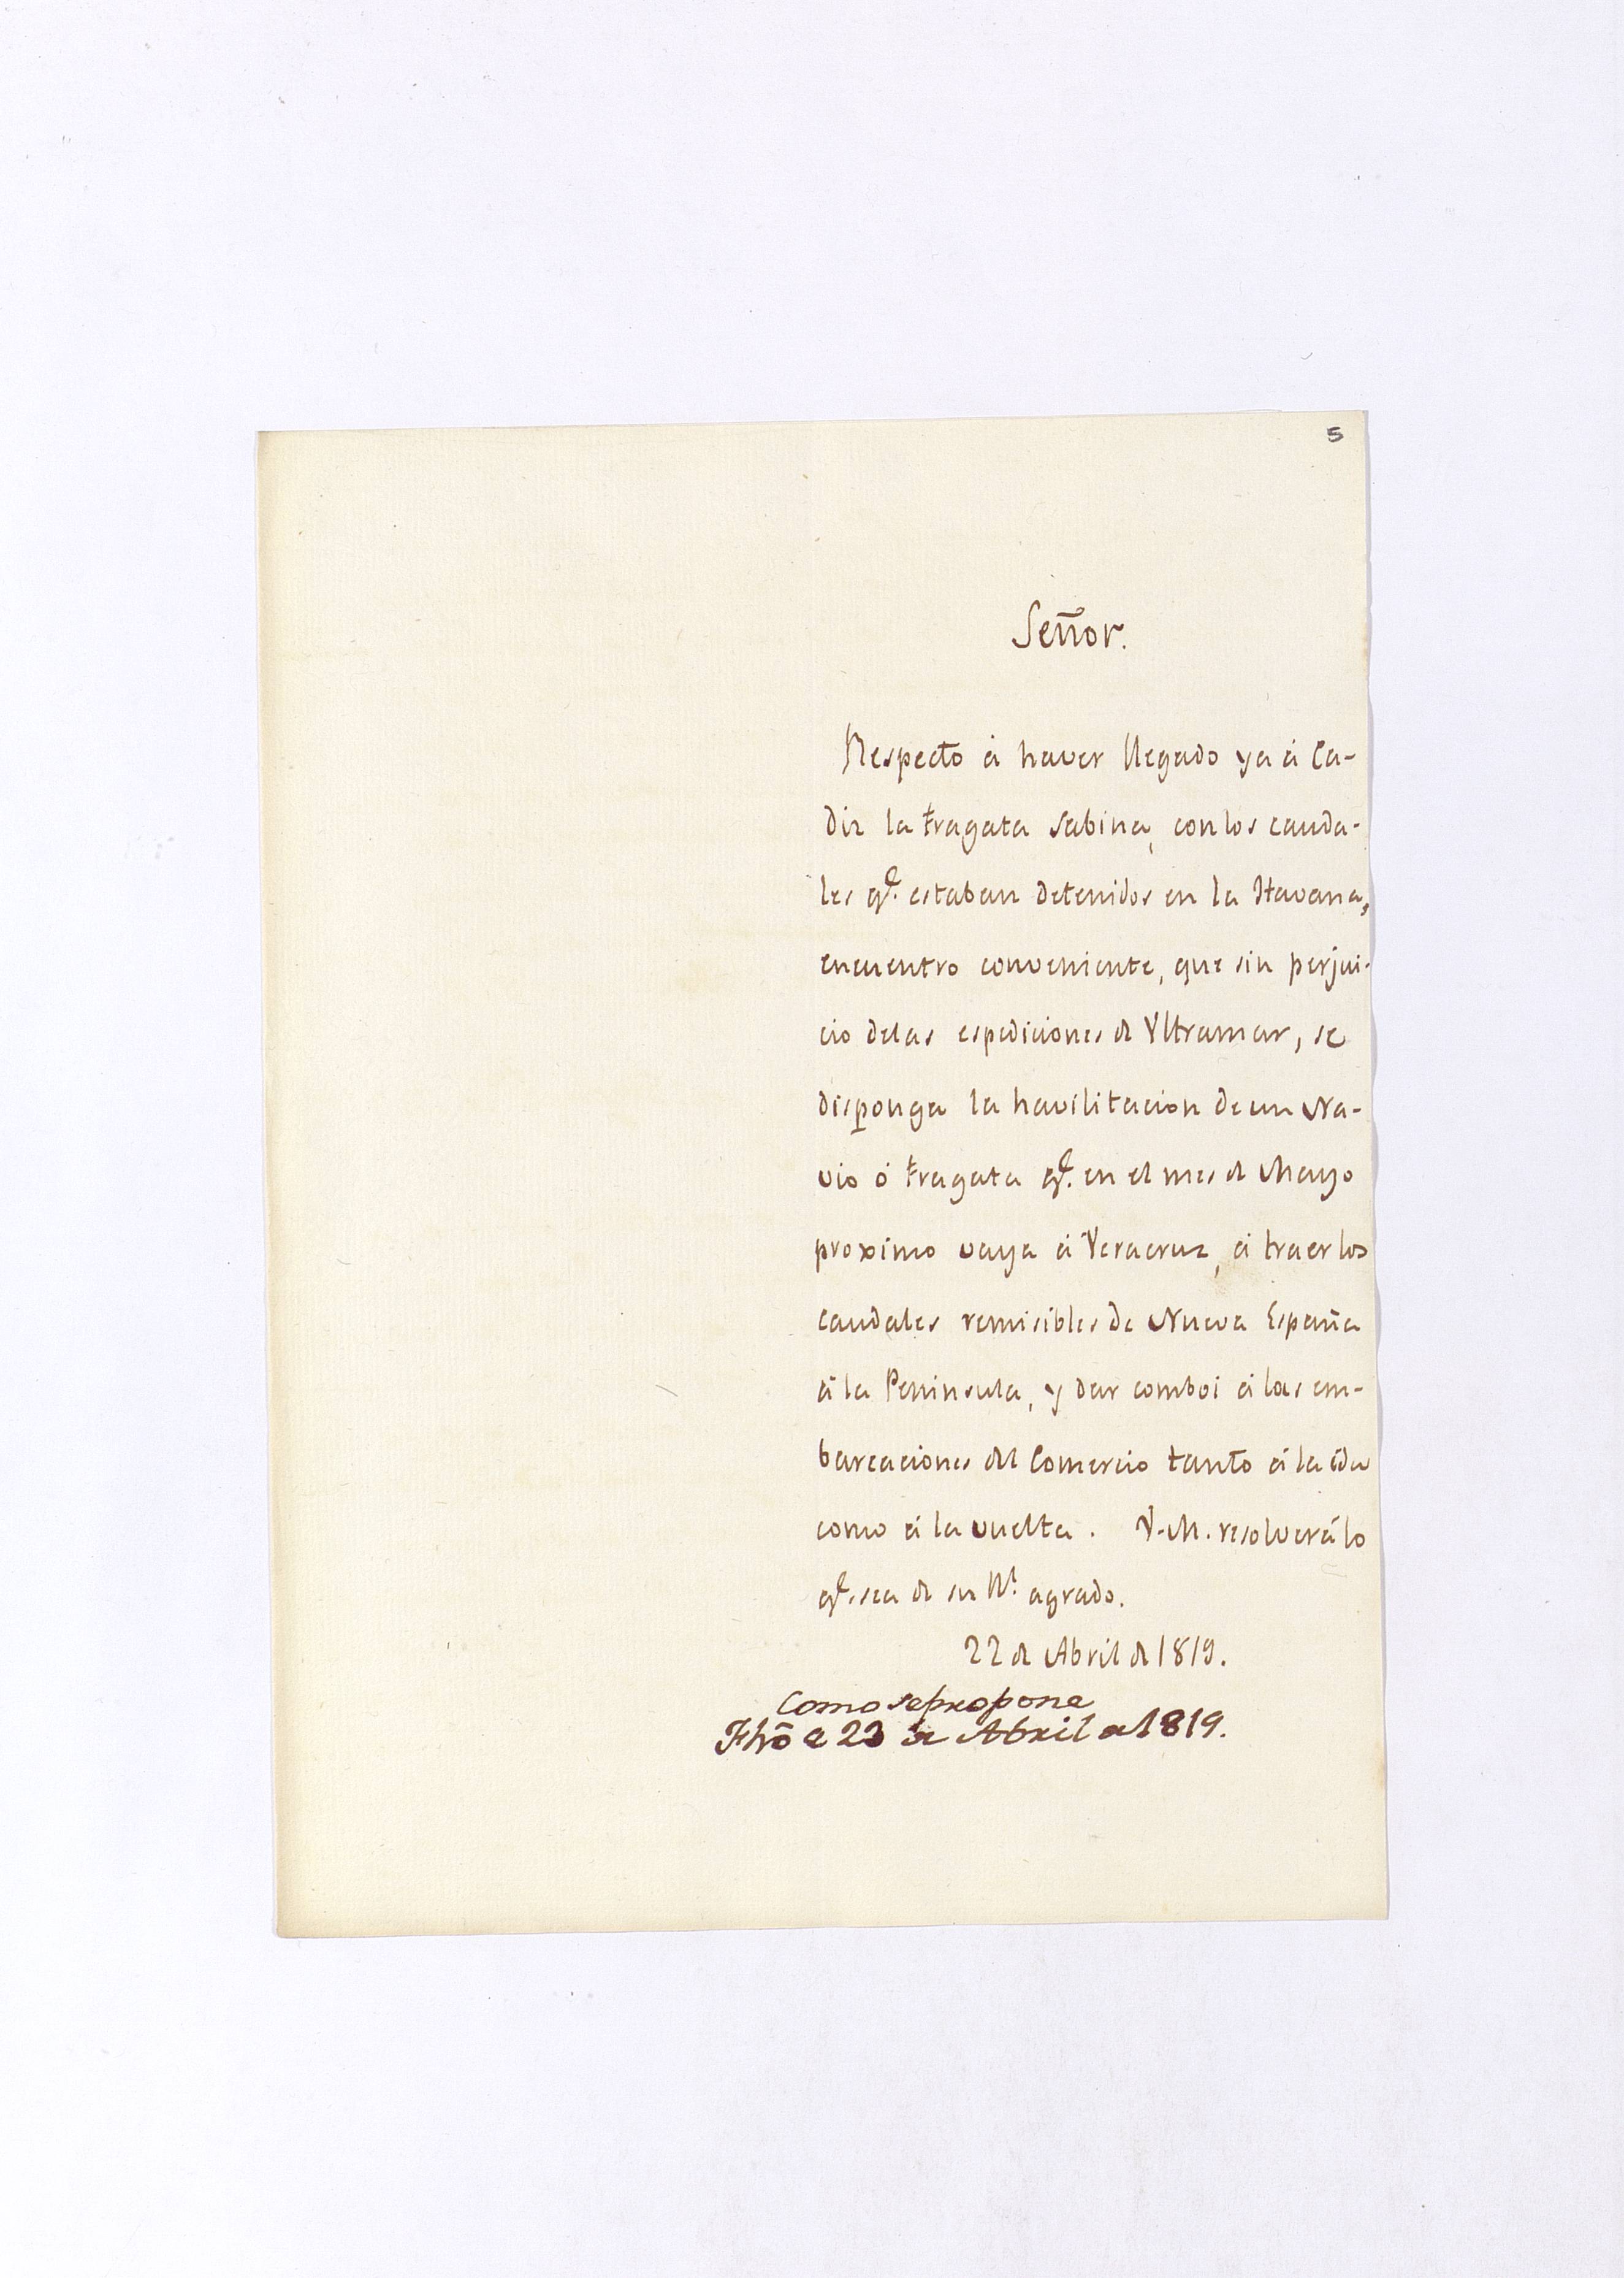 5
Señor.
Respecto á haver llegado ya á Ca-
diz la fragata Sabina, con los cauda-
les qe. estaban detenidos en la Havana,
encuentro conveniente, que sin perjui-
cio delas espediciones de Vltramar, se
disponga la havilitacion de un Na-
vio ó fragata qe. en el mes de Mayo
proximo vaya á Veracruz, á traer los
caudales remisibles de Nueva España
á la Peninsula, y dar comboi á las em-
barcaciones del Comercio tanto á la ida
como á la vuelta. V.M. resolverá lo
qe. sea de su Rl. agrado.
22 de Abril de 1819.
Como se propone
Fhō a 23 de Abril de 1819.